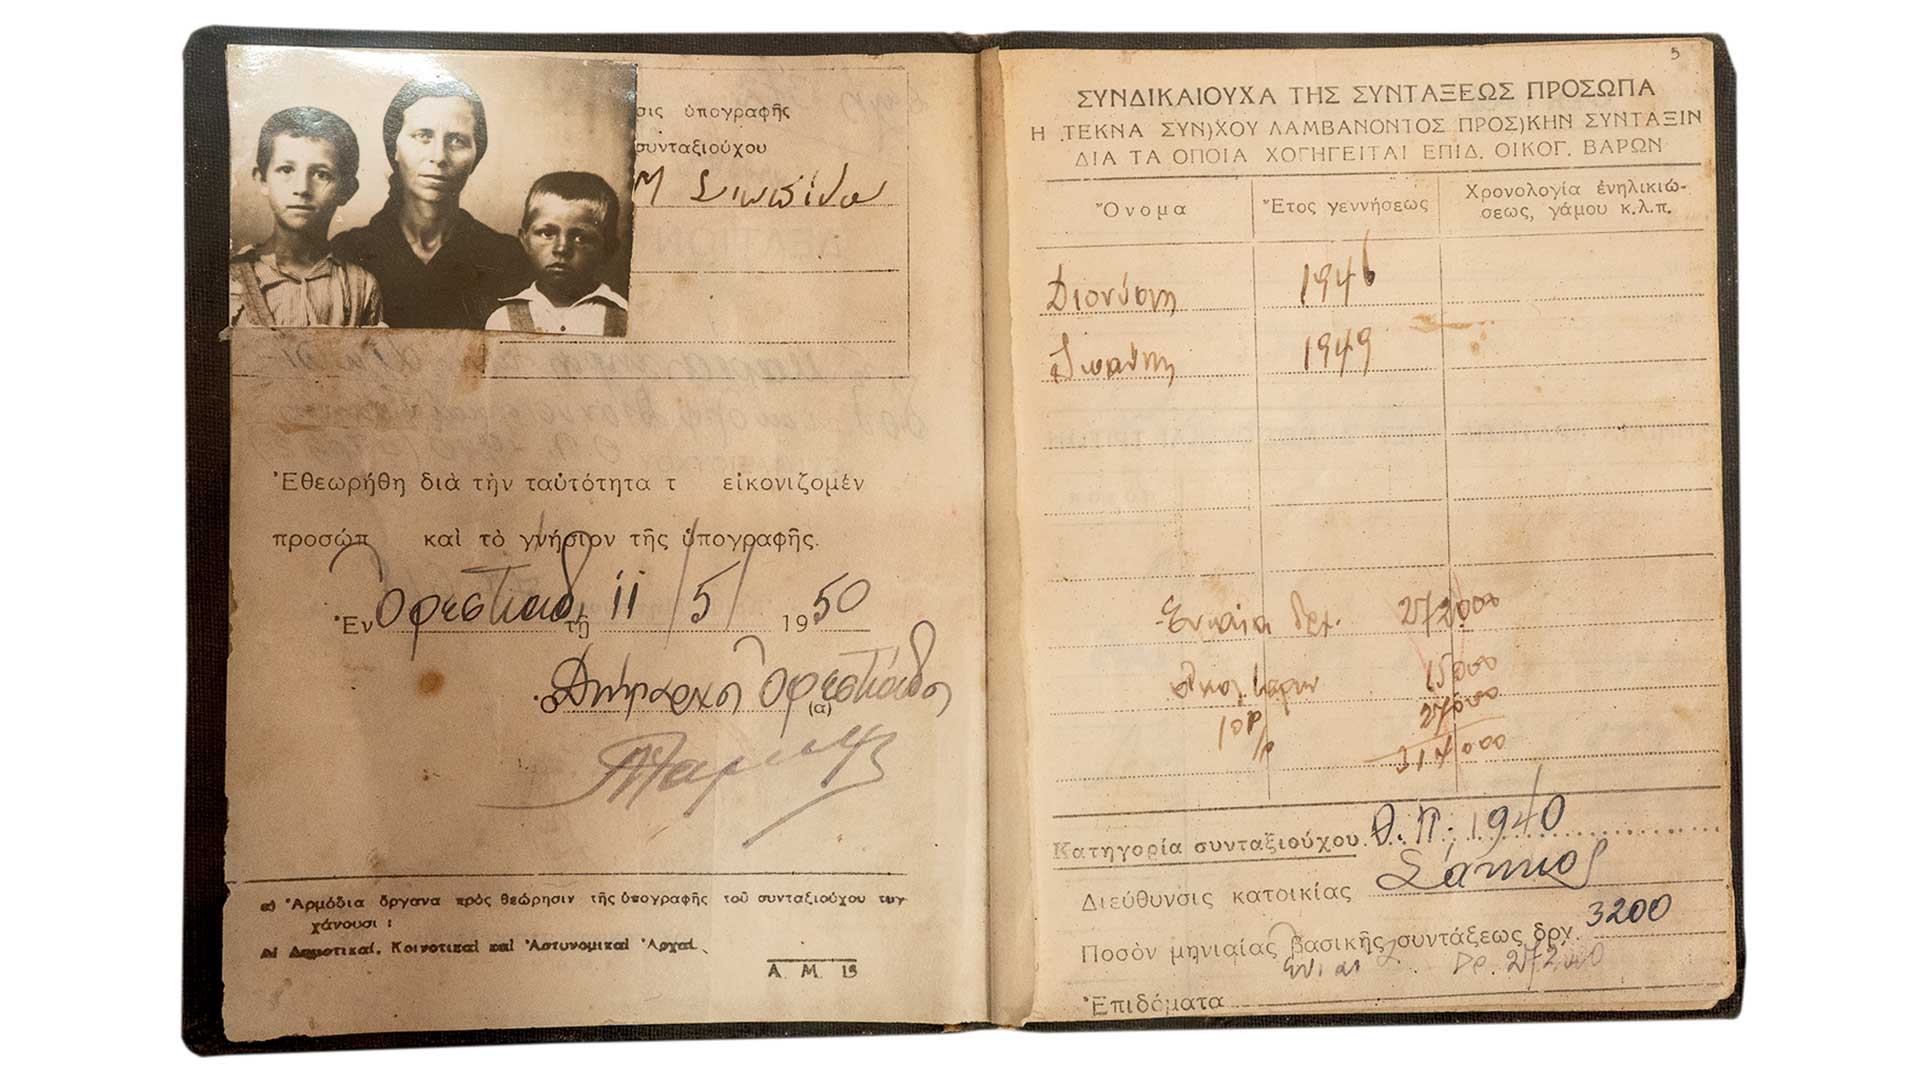 σις ὑπογραφῆς
συνταξιούχου
Μ
Ἐθεωρήθη διὰ τὴν ταὐτότητα τ εἰκονιζομέν
προσώπ καὶ τὸ γνήσιον τῆς ὑπογραφῆς.
Ἐν Ὀρεστιάδι τῇ 11/5/ 1950
ὁ Δήμαρχος Ὀρεστιάδος
(α)
α) Ἁρμόδια ὄργανα πρὸς θεώρησιν τῆς ὑπογραφῆς τοῦ συνταξιούχου τυγ
χάνουσι :
Αἱ Δημοτικαί, Κοινοτικαὶ καὶ Ἀστυνομικαὶ Ἀρχαί.
Α Μ 13
5
ΣΥΝΔΙΚΑΙΟΥΧΑ ΤΗΣ ΣΥΝΤΑΞΕΩΣ ΠΡΟΣΩΠΑ
Η ΤΕΚΝΑ ΣΥΝ)ΧΟΥ ΛΑΜΒΑΝΟΝΤΟΣ ΠΡΟΣ)ΚΗΝ ΣΥΝΤΑΞΙΝ
ΔΙΑ ΤΑ ΟΠΟΙΑ ΧΟΓΗΓΕΙΤΑΙ ΕΠΙΔ. ΟΙΚΟΓ. ΒΑΡΩΝ
Ὄνομα Ἔτος γεννήσεως Χρονολογία ἐνηλικιώ-
σεως, γάμου κ.λ.π.
Διονύσης 1946
1949
δρχ. 272000
15000
10% 27000
314000
Κατηγορία συνταξιούχου Θ. Π. 1940
Διεύθυνσις κατοικίας Σάκκος
Ποσὸν μηνιαίας βασικῆς συντάξεως δρχ. 3200
Δρ. 272000
Ἐπιδόματα